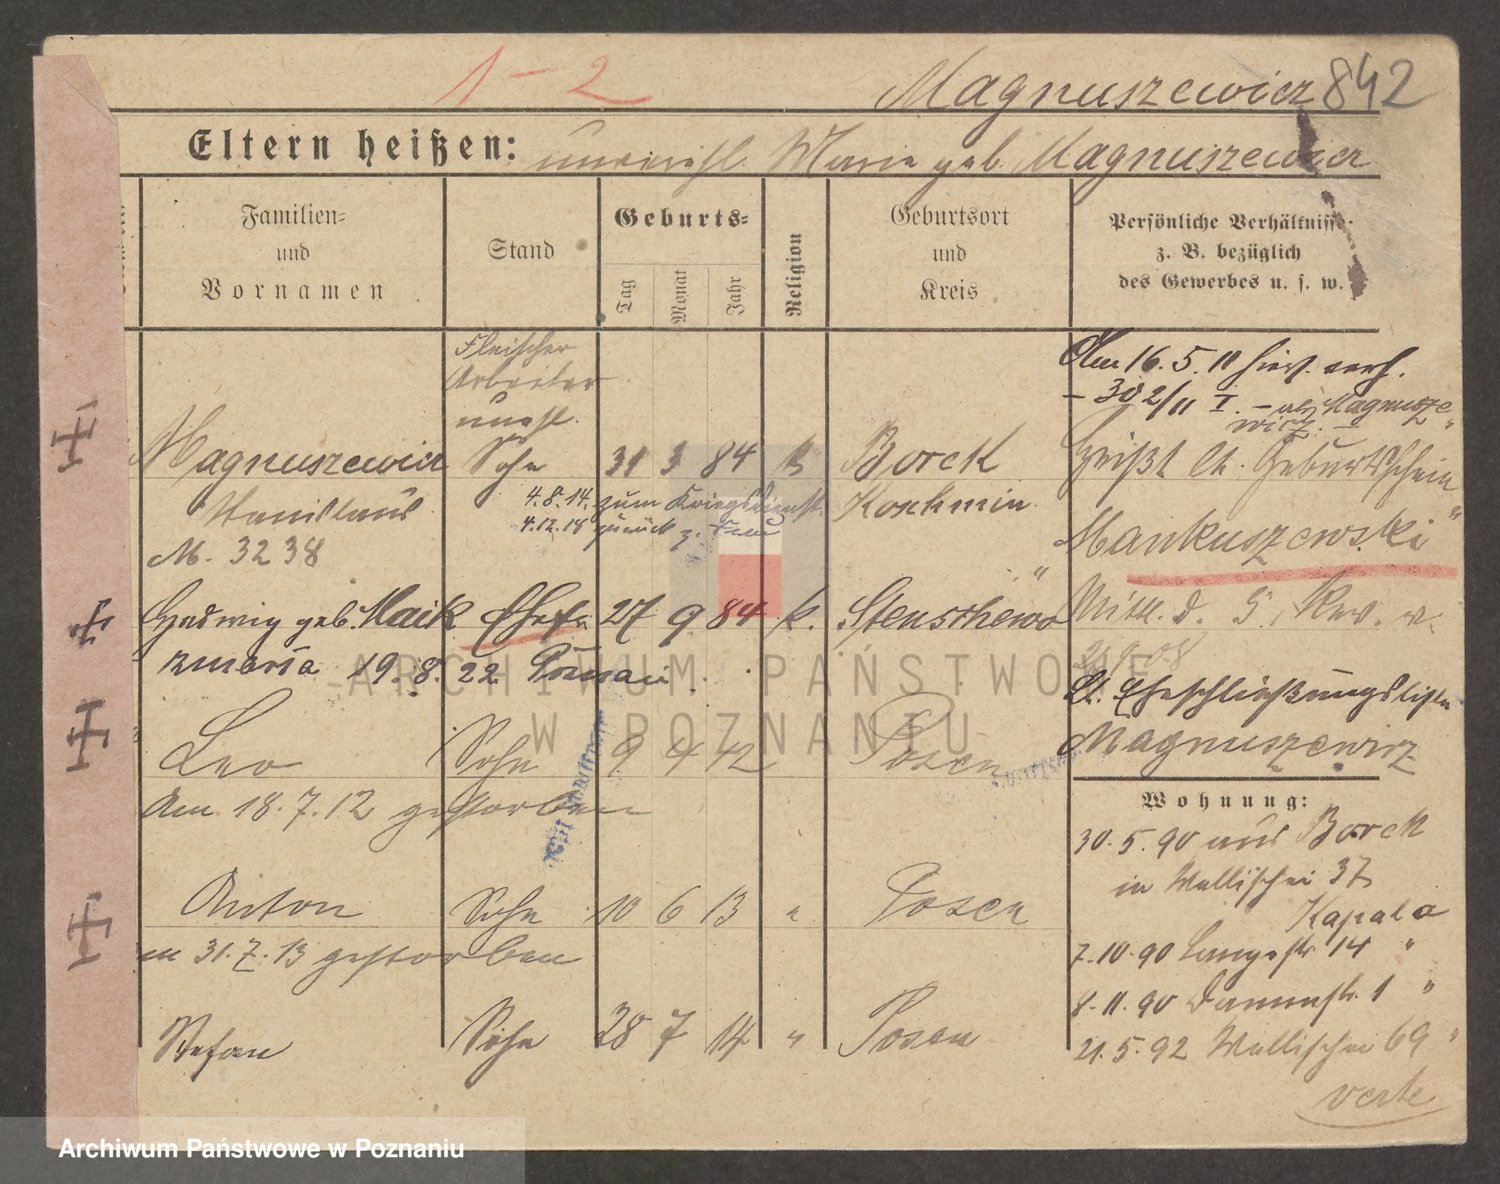 1 - 2
Magnuszewicz 842
Eltern heißen: unverehl. Marie geb. Magnuszewicz
Familien-
und
Vornamen
Stand
Geburts-
Tag
Monat
Jahr
Religion
Geburtsort
und
Kreis
Persönliche Verhältnisse
z. B. bezüglich
des Gewerbes u. s. w.
Fleischer
Arbeiter
unehl.
Magnuszewicz Sohn 31 3 84 K Borek
Stanislaus
4.8.14. zum Kriegsdienst
4.12.18 zurück z. Frau
Koschmin
M. 3238
Hedwig geb. Maik Ehefr. 27 9 84 k. Stenschewo
zmarła 19.8.22 Poznań
Leo Sohn 9 4 12 Posen
Am 18.7.12 gestorben
Anton Sohn 10 6 13 " Posen
am 31.7.13 gestorben
Stefan Sohn 28 7 14 " Posen
Am 16.5.11 hier verh.
- 302/11 I. - als Magnusze
wicz. -
Heißt lt. Geburtsschein
Mankuszewski"
Mittl. d. 5. Rev. v.
2/9.08
Lt. Eheschließungsliste
Magnuszewicz
Wohnung:
30.5.90 aus Borek
in Wallischei 37
Kapala
7.10.90 Langestr. 14 "
8.11.90 Dammstr. 1 "
21.5.92 Wallischei 69 "
verte
ARCHIWUM PAŃSTWOWE
W POZNANIU
Archiwum Państwowe w Poznaniu